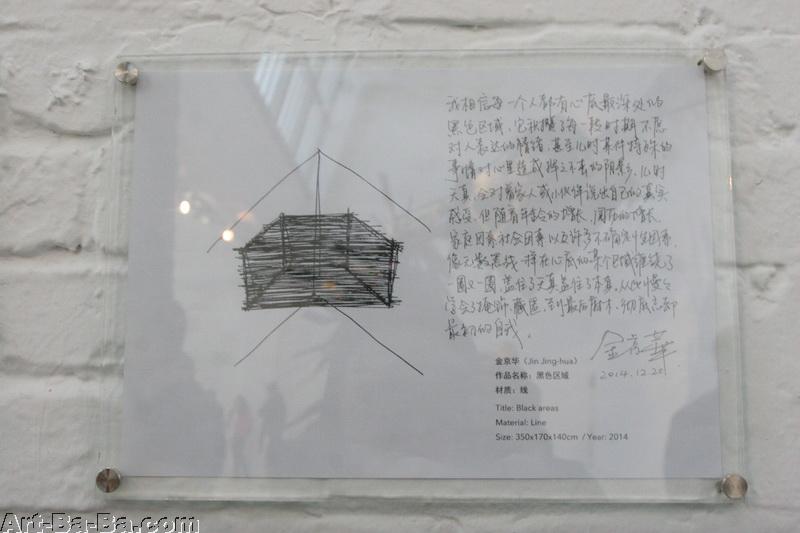 我相信每一个人都有心底最深处的
黑色区域，它积攒了每一段时期不愿
对人表达的情绪，甚至儿时某件特殊的
事情对心里造成挥之不去的阴影，儿时
天真，会对着家人或小伙伴说出自己的真实
感受，但随着年龄的增长，阅历的增长，
家庭因素社会因素以及许多不确定因素，
像无数黑线一样在心底的某个区域缠绕了
一圈又一圈，盖住了天真盖住了本真，从此慢慢
学会了掩饰，藏匿，到最后麻木，彻底忘却
最初的自我。
金京華
2014.12.20
金京华（Jin Jing-hua）
作品名称：黑色区域
材质：线
Title: Black areas
Material: Line
Size: 350x170x140cm / Year: 2014
Art-Ba-Ba.com